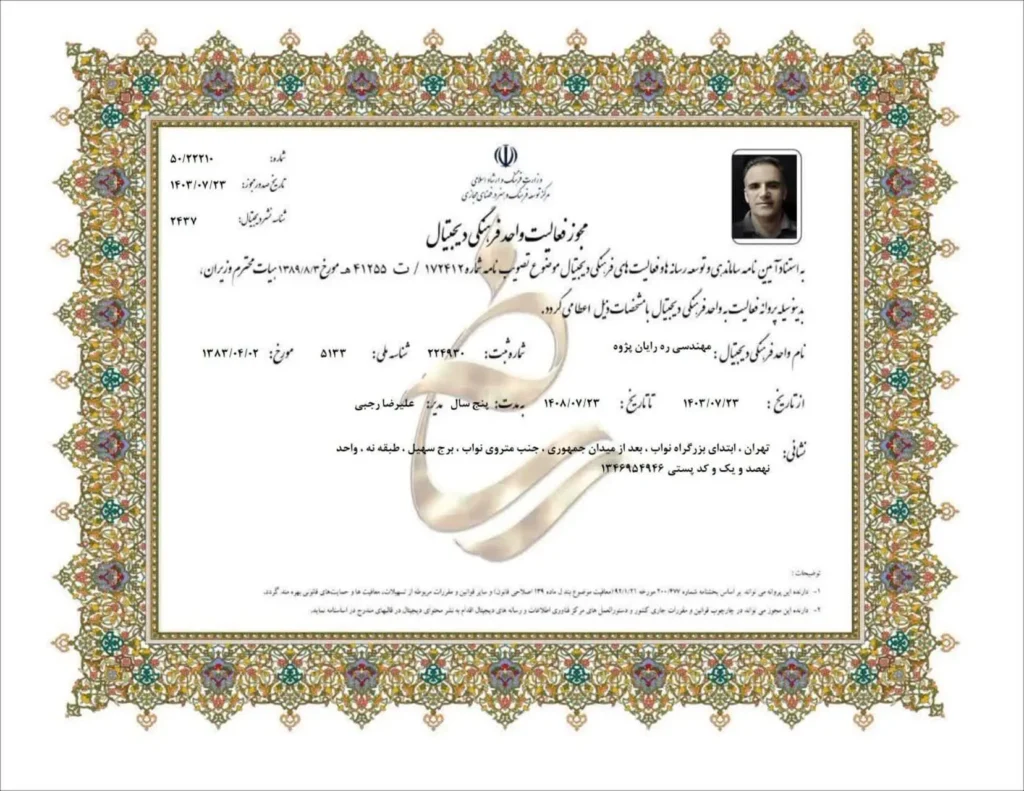 شماره: ۵۰/۲۲۲۱۰
تاریخ صدور مجوز: ۱۴۰۳/۰۷/۲۳
شناسه نشر دیجیتال: ۲۴۳۷
وزارت فرهنگ و ارشاد اسلامی
مرکز توسعه فرهنگ و هنر در فضای مجازی
مجوز فعالیت واحد فرهنگی دیجیتال
به استناد آیین نامه ساماندهی و توسعه رسانه ها و فعالیت های فرهنگی دیجیتال موضوع تصویب نامه شماره ۱۷۲۴۱۲ / ت ۴۱۲۵۵ هـ مورخ ۱۳۸۹/۸/۳ هیات محترم وزیران،
بدینوسیله پروانه فعالیت به واحد فرهنگی دیجیتال با مشخصات ذیل اعطا می گردد.
نام واحد فرهنگی دیجیتال : مهندسی ره رایان پژوه شماره ثبت: ۲۲۴۹۳۰ شناسه ملی: ۵۱۳۳ مورخ: ۱۳۸۳/۰۴/۰۲
از تاریخ : ۱۴۰۳/۰۷/۲۳ تا تاریخ : ۱۴۰۸/۰۷/۲۳ به مدت: پنج سال مدیر: علیرضا رجبی
نشانی: تهران ، ابتدای بزرگراه نواب ، بعد از میدان جمهوری ، جنب متروی نواب ، برج سهیل ، طبقه نه ، واحد
نهصد و یک و کد پستی ۱۳۴۶۹۵۴۹۴۶
توضیحات :
۱- دارنده این پروانه می تواند بر اساس بخشنامه شماره ۲۰۰/۴۷۷ مورخه ۹۲/۱/۲۱ (معافیت موضوع بند ل ماده ۱۳۹ اصلاحی قانون) و سایر قوانین و مقررات مربوطه از تسهیلات، معافیت ها و حمایت‌های قانونی بهره مند گردد.
۲- دارنده این مجوز می تواند در چارچوب قوانین و مقررات جاری کشور و دستورالعمل های مرکز فناوری اطلاعات و رسانه های دیجیتال اقدام به نشر محتوای دیجیتال در قالبهای مندرج در اساسنامه نماید.